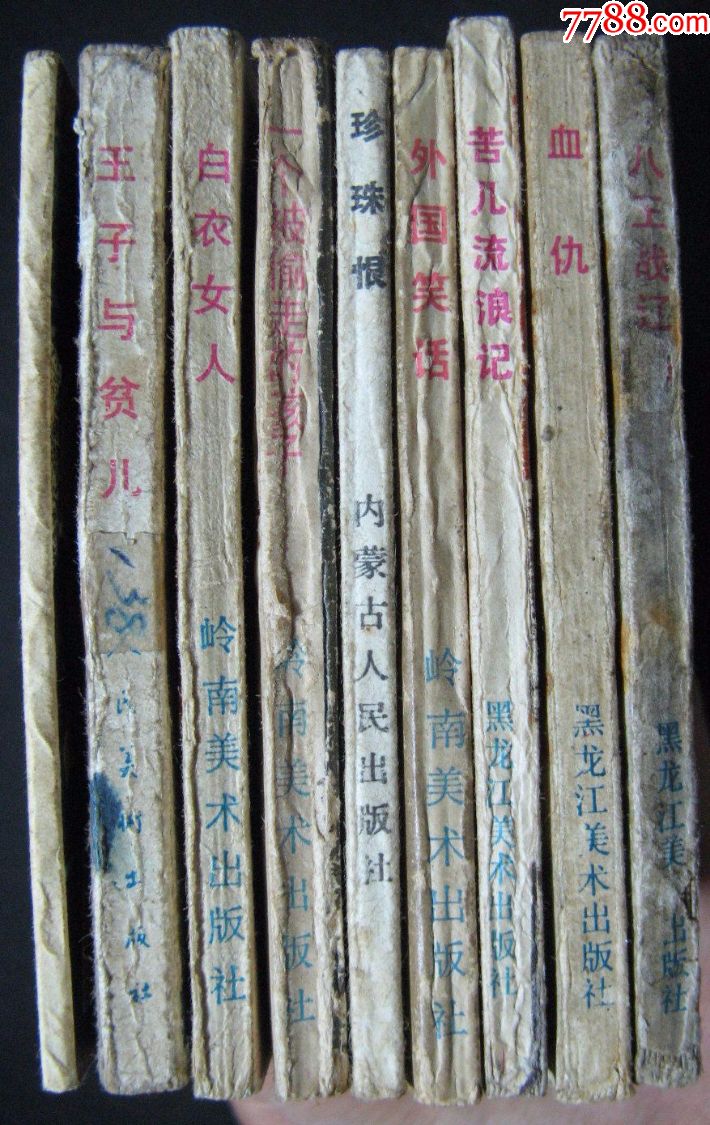 7788.com
王子与贫儿
民美術出版社
白衣女人
岭南美术出版社
一个被偷走的孩子
岭南美术出版社
珍珠恨
内蒙古人民出版社
外国笑话
岭南美术出版社
苦儿流浪记
黑龙江美术出版社
血仇
黑龙江美术出版社
八卫战辽
黑龙江美 出版社